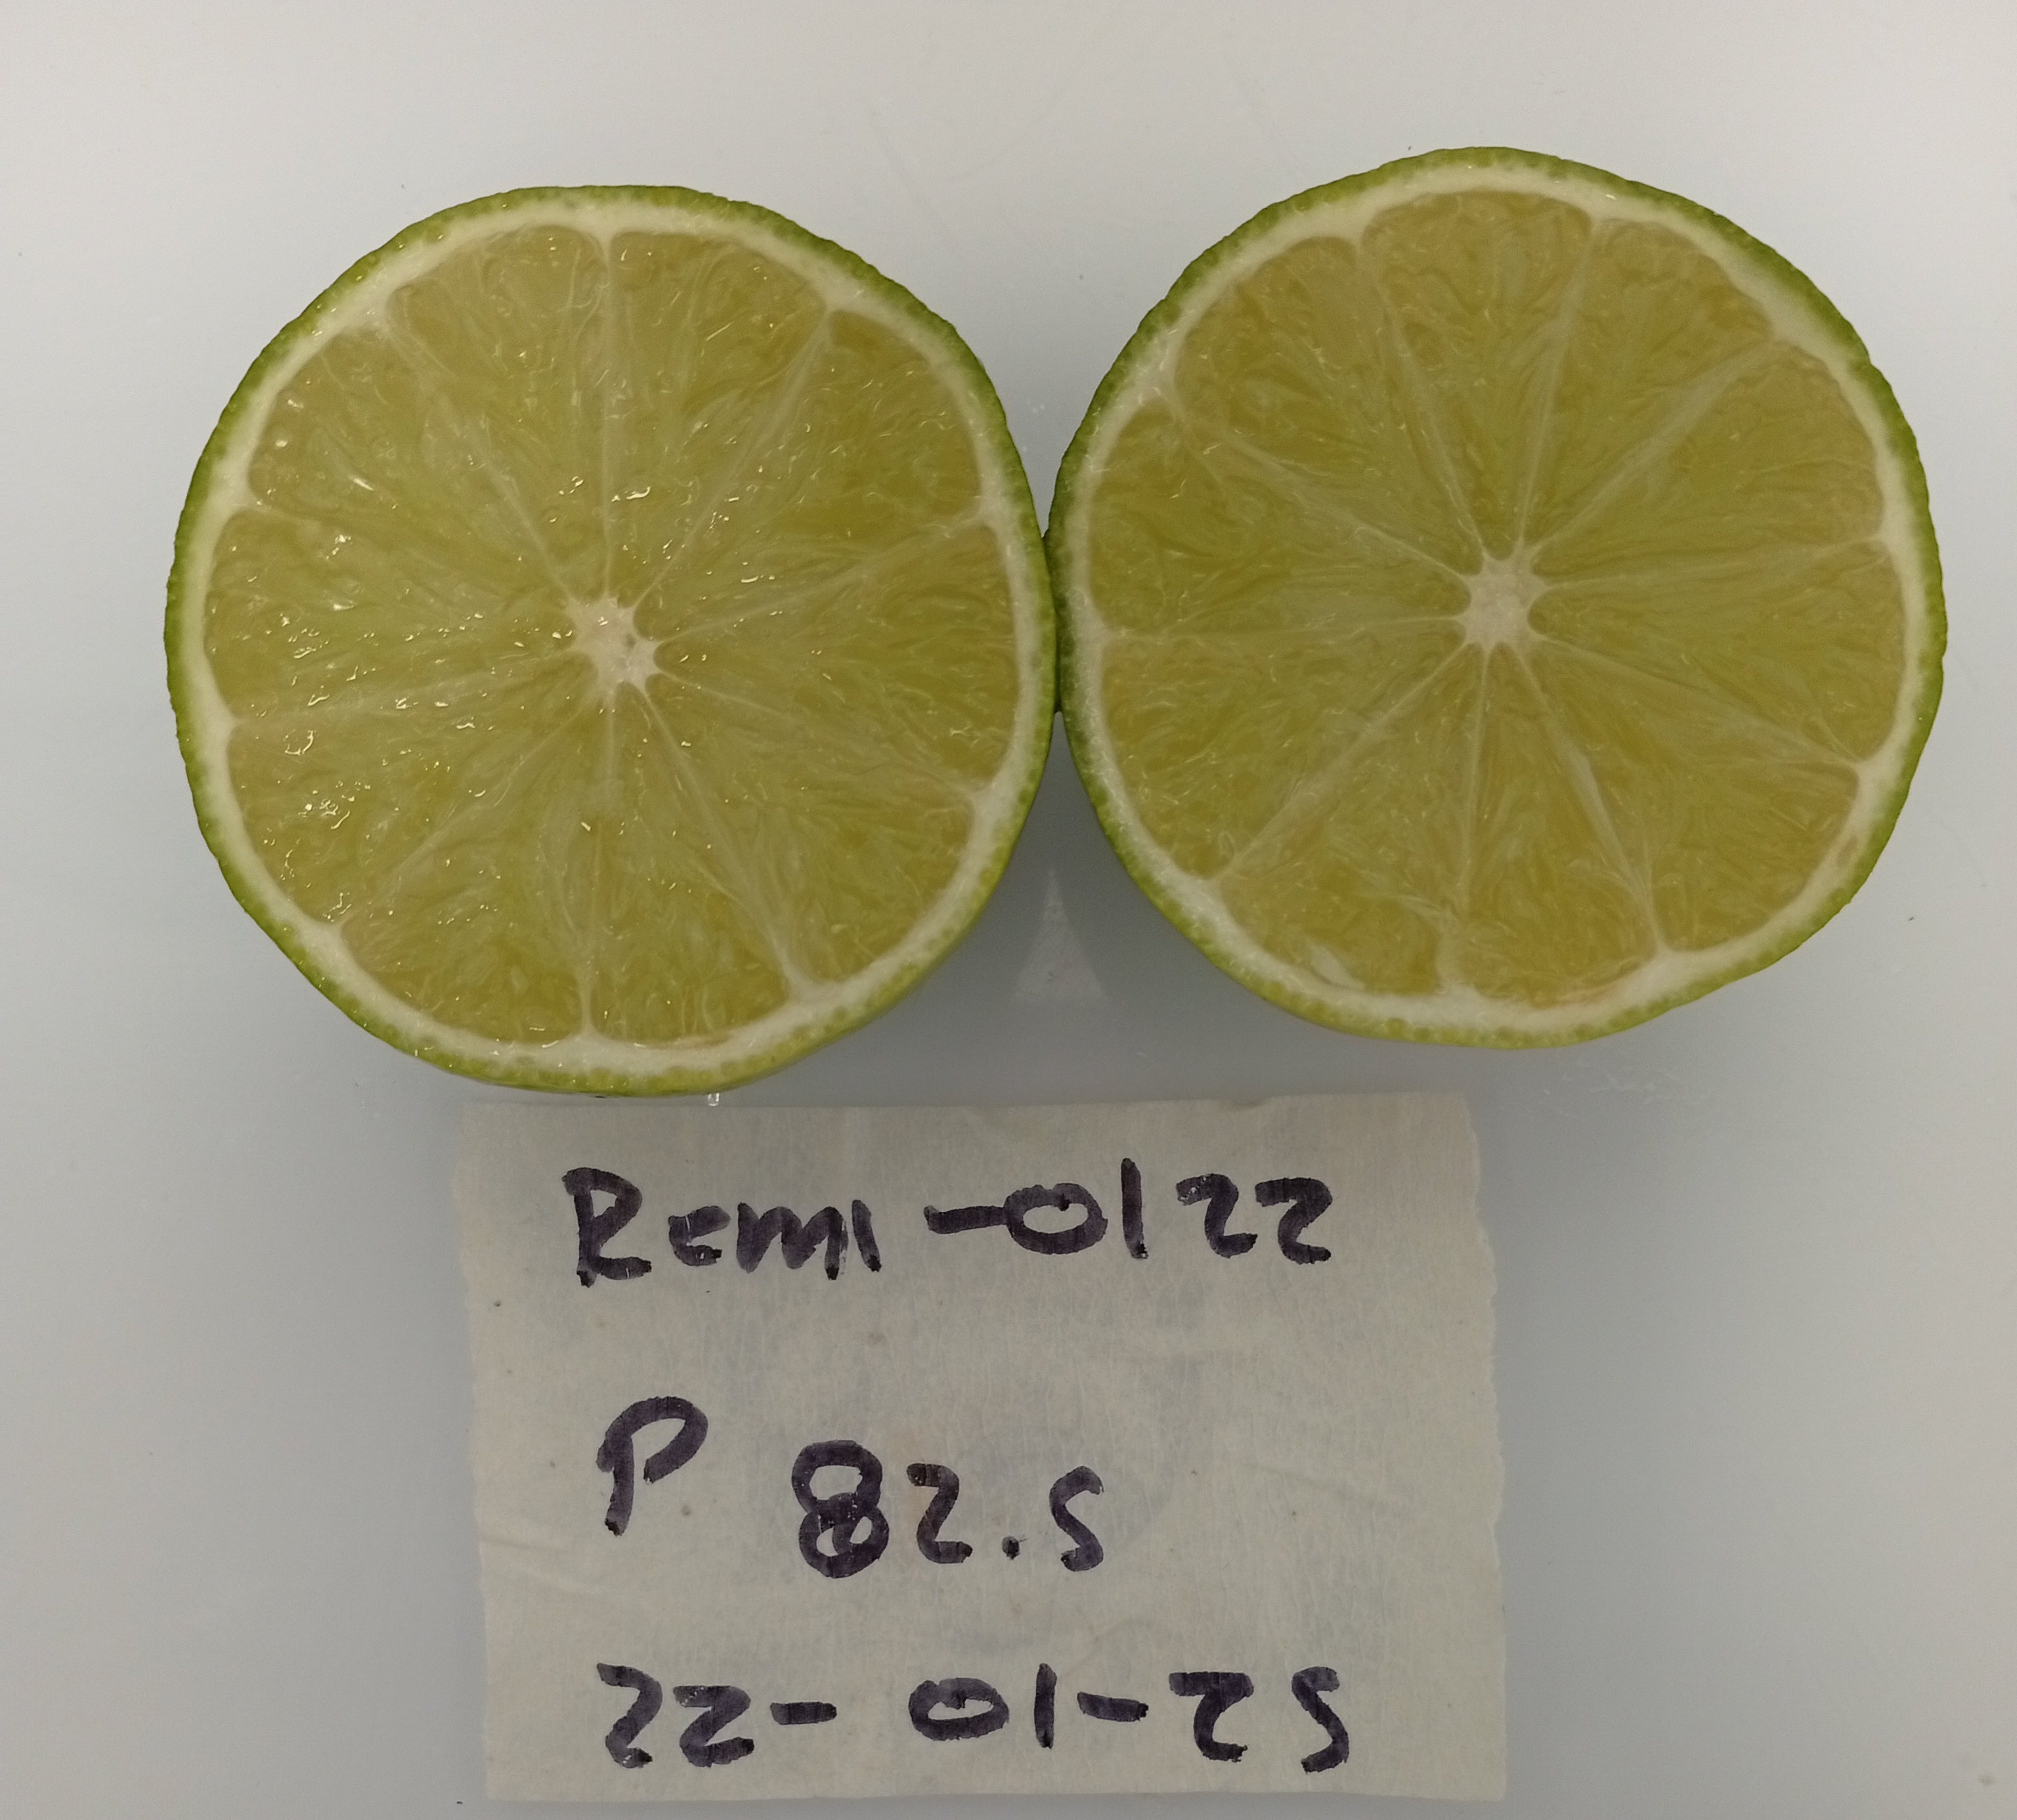 Remi-0122
P 82.5
22-01-25